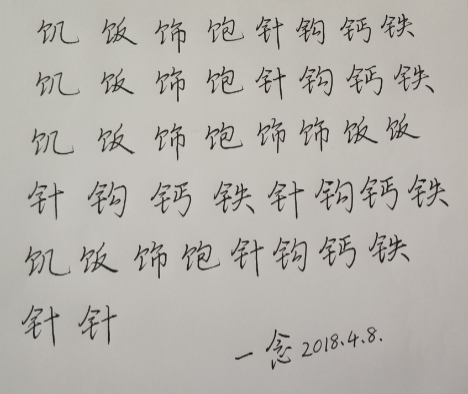 饥饭饰饱针钩钙铁
饥饭饰饱针钩钙铁
饥饭饰饱饰饰饭饭
针钩钙铁针钩钙铁
饥饭饰饱针钩钙铁
针针
一念2018.4.8.